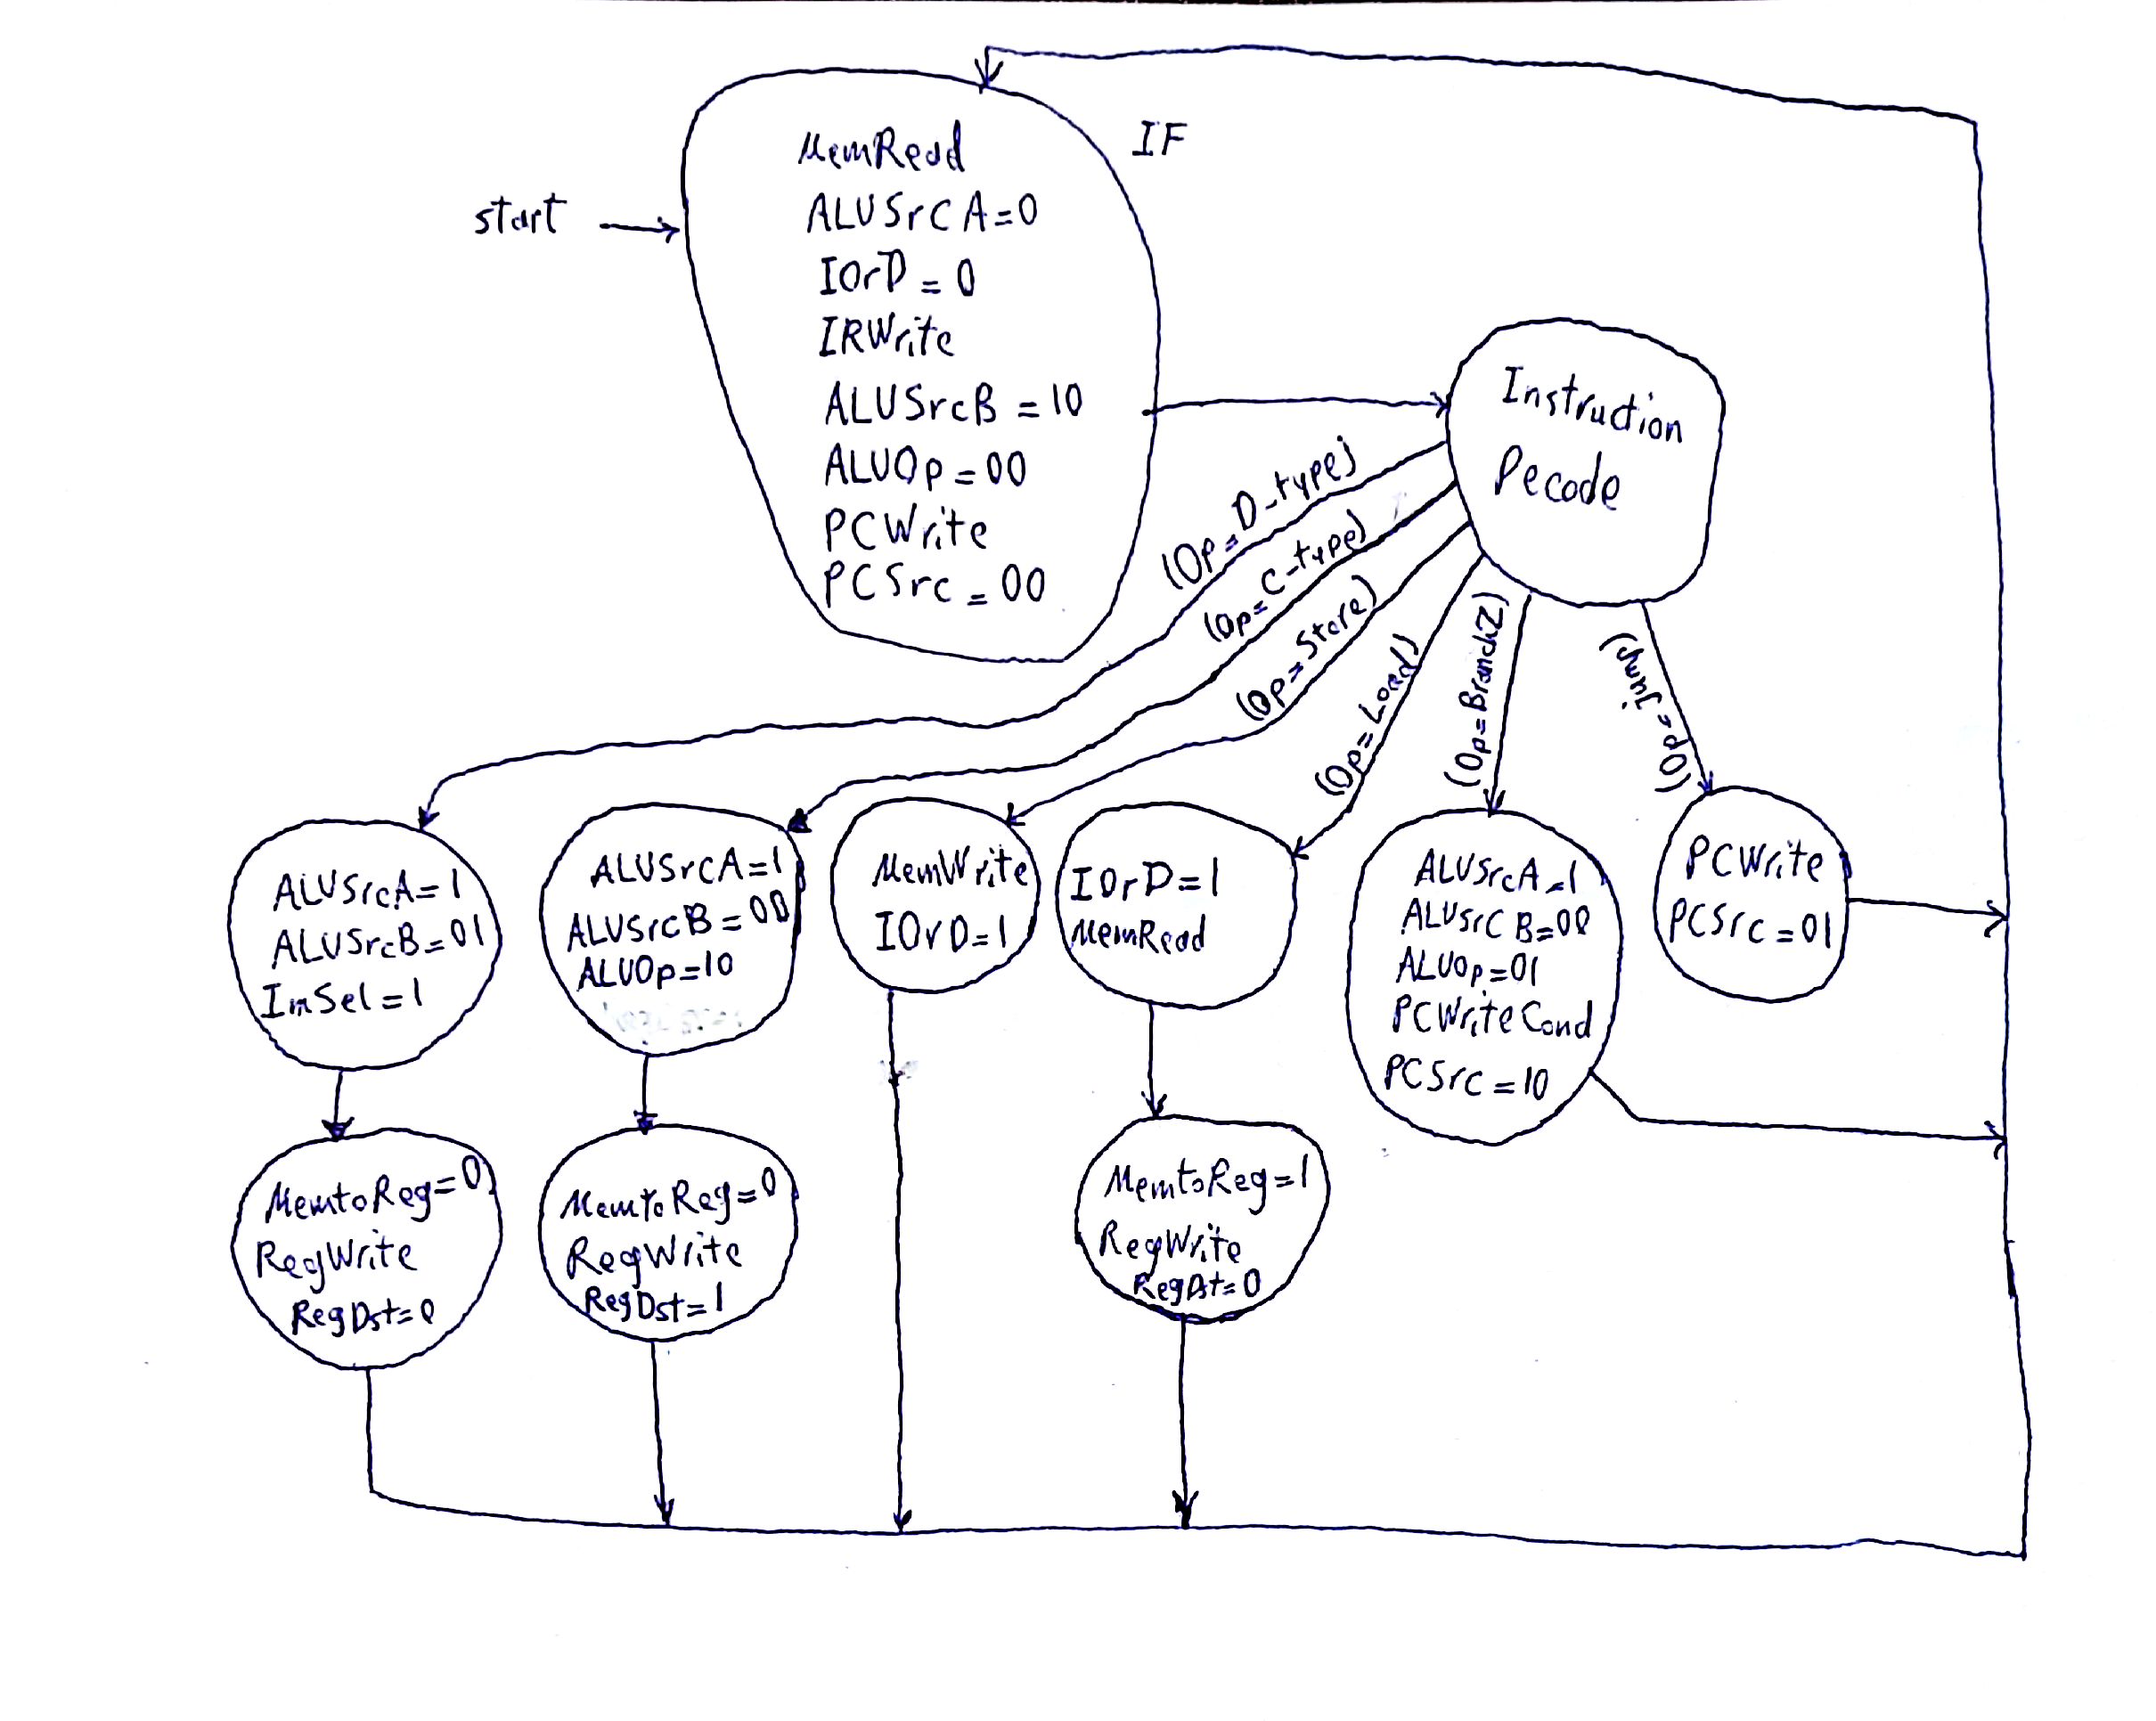 IF
MemRead
ALUSrcA=0
IOrD=0
IRWrite
ALUSrcB=10
ALUOp=00
PCWrite
PCSrc=00
start
Instruction
Decode
(Op=D-type)
(Op=C-type)
(Op=Store)
(Op=Load)
(Op=BranchZ)
(Op=Jump)
ALUSrcA=1
ALUSrcB=01
ImSel=1
ALUSrcA=1
ALUSrcB=00
ALUOp=10
MemWrite
IOrD=1
IOrD=1
MemRead
ALUSrcA=1
ALUSrcB=00
ALUOp=01
PCWriteCond
PCSrc=10
PCWrite
PCSrc=01
MemtoReg=0
RegWrite
RegDst=0
MemtoReg=0
RegWrite
RegDst=1
MemtoReg=1
RegWrite
RegDst=0